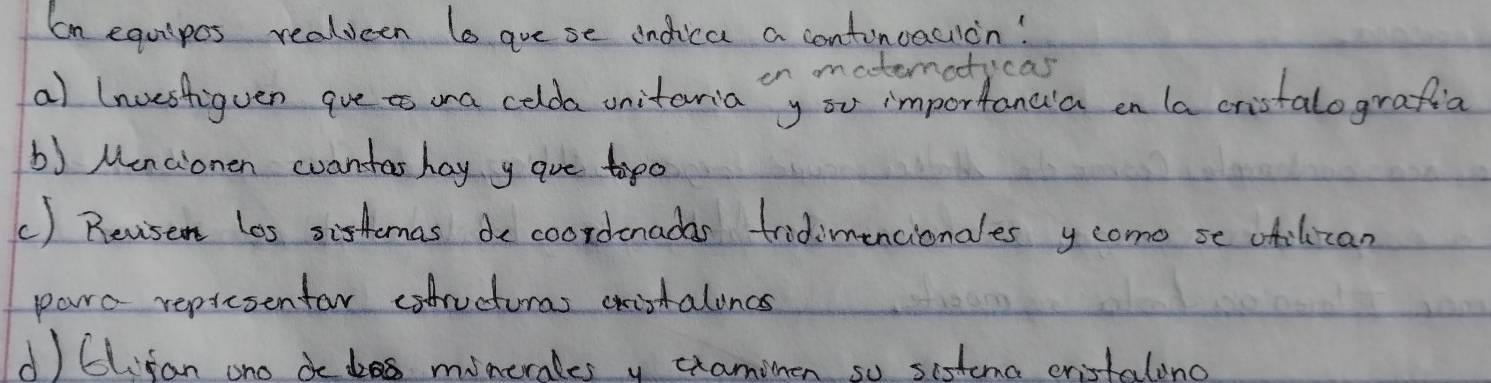 En equipos realicen lo que se indica a continuación:
en matematicas
a) Investiguen que es una celda unitaria y su importancia en la cristalografía
b) Mencionen cuantas hay y que tipo
c) Revisen los sistemas de coordenadas tridimencionales y como se utilizan
para representar estructuras cristalinas
d) Elijan uno de los minerales y examinen su sistema cristalino